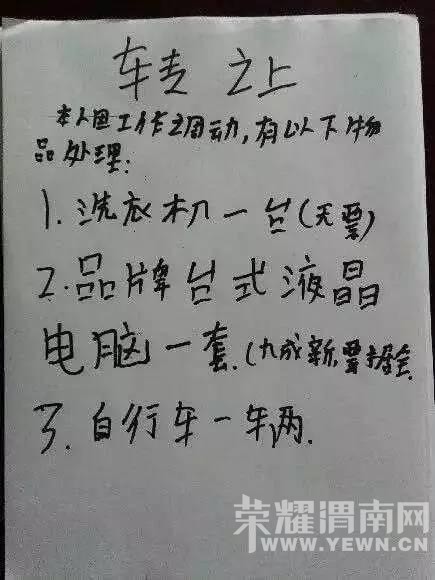 转让
本人因工作调动,有以下物
品处理:
1.洗衣机一台(无票)
2.品牌台式液晶
电脑一套.(九成新,票据全
3.自行车一辆.
荣耀渭南网
WWW.YEWN.CN